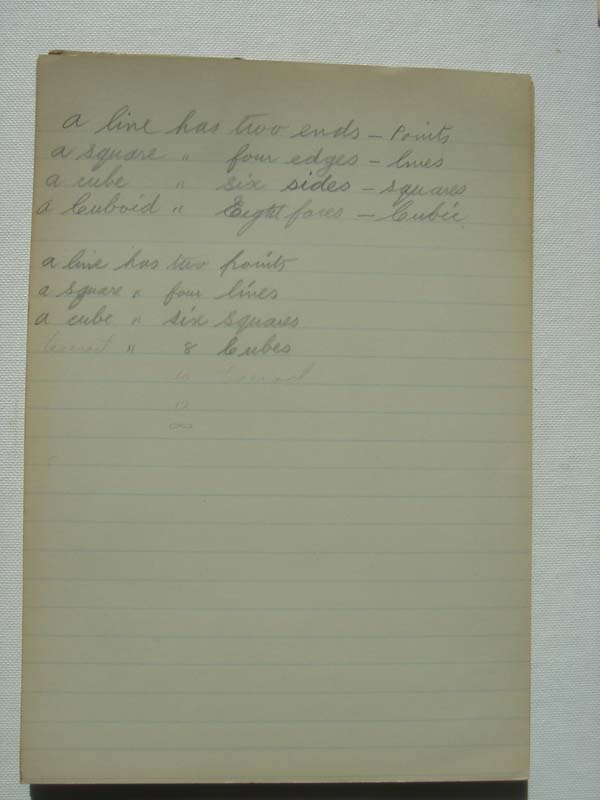 a line has two ends – Points
a square " four edges – lines
a cube " six sides – squares
a Cuboid " Eight faces – Cubic
a line has two points
a square " four lines
a cube " six squares
" 8 Cubes
10
12
∞